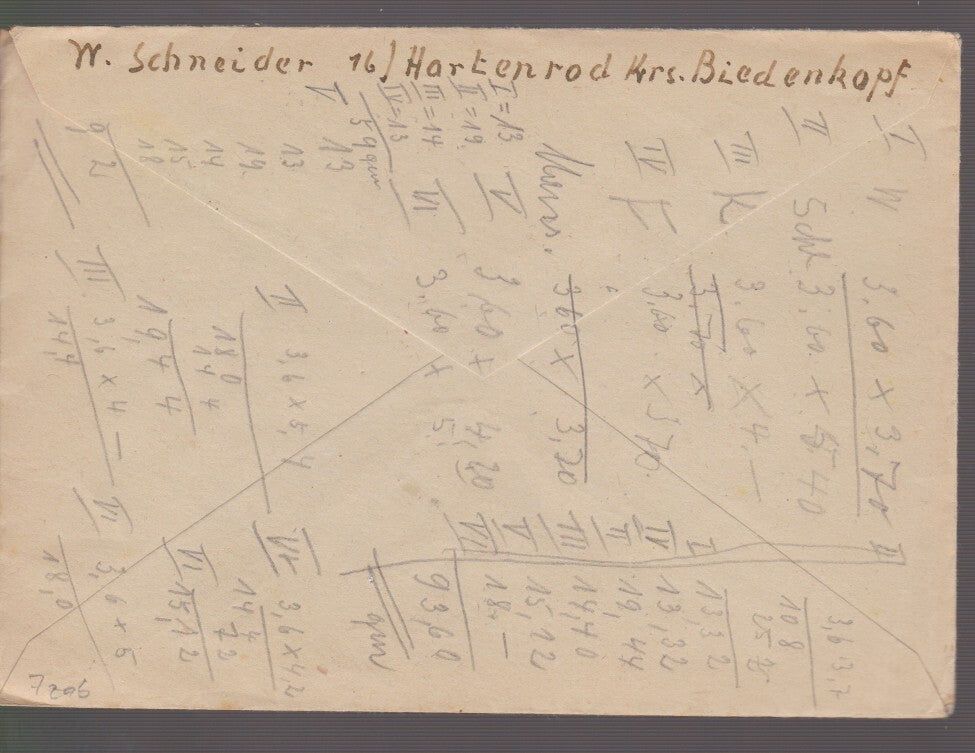 W. Schneider 16) Hartenrod Krs. Biedenkopf
I
3,60 x 3,70
II Schl. 3,60 x 5,40
III K 3,60 x 4,—
3,70 x
IV 3,60 x 3,70
3,60 x 3,70
V 3,60 x 4,20
VI 3,60 x 5,
I = 13
II = 19.
III = 14
IV = 13
59 qm
V
13
13
19.
14
15
18
92
II 3,6 x 5,4
18,0
1,44
19,44
III 3,6 x 4 —
14,4
II
3,6 3,7
108
25 2
13 3 2
I 13,32
IV 19,44
II 14,40
III 15,12
V 18,—
VI 93,60
qm
VI 3,6 x 4,2
14,4
72
VI 15,12
VI 3,6 x 5
18,0